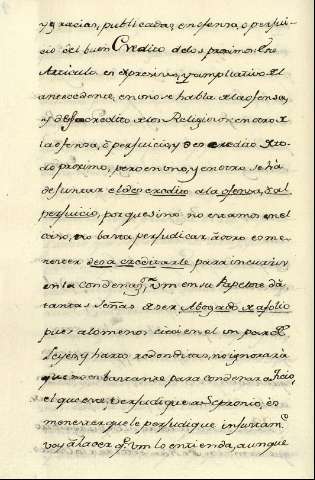 y gracias, publicadas en ofensa, o perjui-
cio del buen Credito de los proximos. Este
Articulo es expresivo, y ampliativo del
antecedente, en uno se habla de la ofensa,
y descredito de la Religion: en otro de
la ofensa, ô perjuicio, y descredito de to-
do proximo, pero en uno, y en otro se há
de juntar el descredito a la ofensa, y al
perjuicio, porque si no no estamos en el
caso, no basta perjudicar á otro es me-
nester desacreditarle para incurrir
en la
Vm en su Papelote dá
tantas señas de ser Abogado de á folio
pues alomenos cita en el un par de
Leyes, y harto redonditas, no ignorará
que no es bastante para condenar a Ticio,
el que este perjudique a Sempronio, es
menester que le perjudique injustam.te
voy á hacer q.e Vm lo entienda, aunque